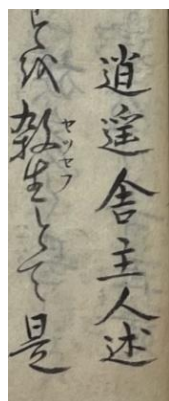 逍遥舎主人述
殺生とて是
セツセフ